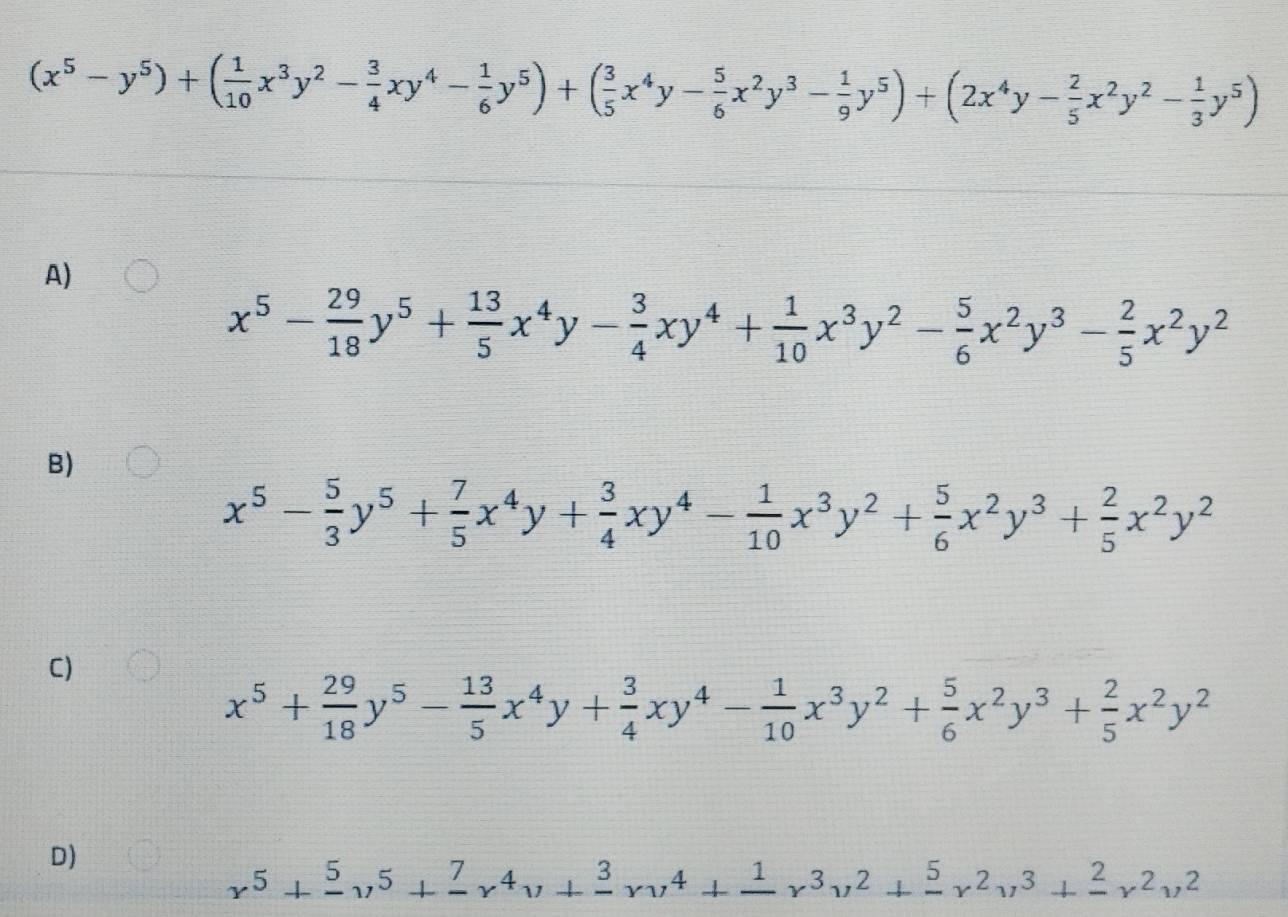 (x⁵ − y⁵) + (1/10 x³y² − 3/4 xy⁴ − 1/6 y⁵) + (3/5 x⁴y − 5/6 x²y³ − 1/9 y⁵) + (2x⁴y − 2/5 x²y² − 1/3 y⁵)
A) x⁵ − 29/18 y⁵ + 13/5 x⁴y − 3/4 xy⁴ + 1/10 x³y² − 5/6 x²y³ − 2/5 x²y²
B) x⁵ − 5/3 y⁵ + 7/5 x⁴y + 3/4 xy⁴ − 1/10 x³y² + 5/6 x²y³ + 2/5 x²y²
C) x⁵ + 29/18 y⁵ − 13/5 x⁴y + 3/4 xy⁴ − 1/10 x³y² + 5/6 x²y³ + 2/5 x²y²
D)